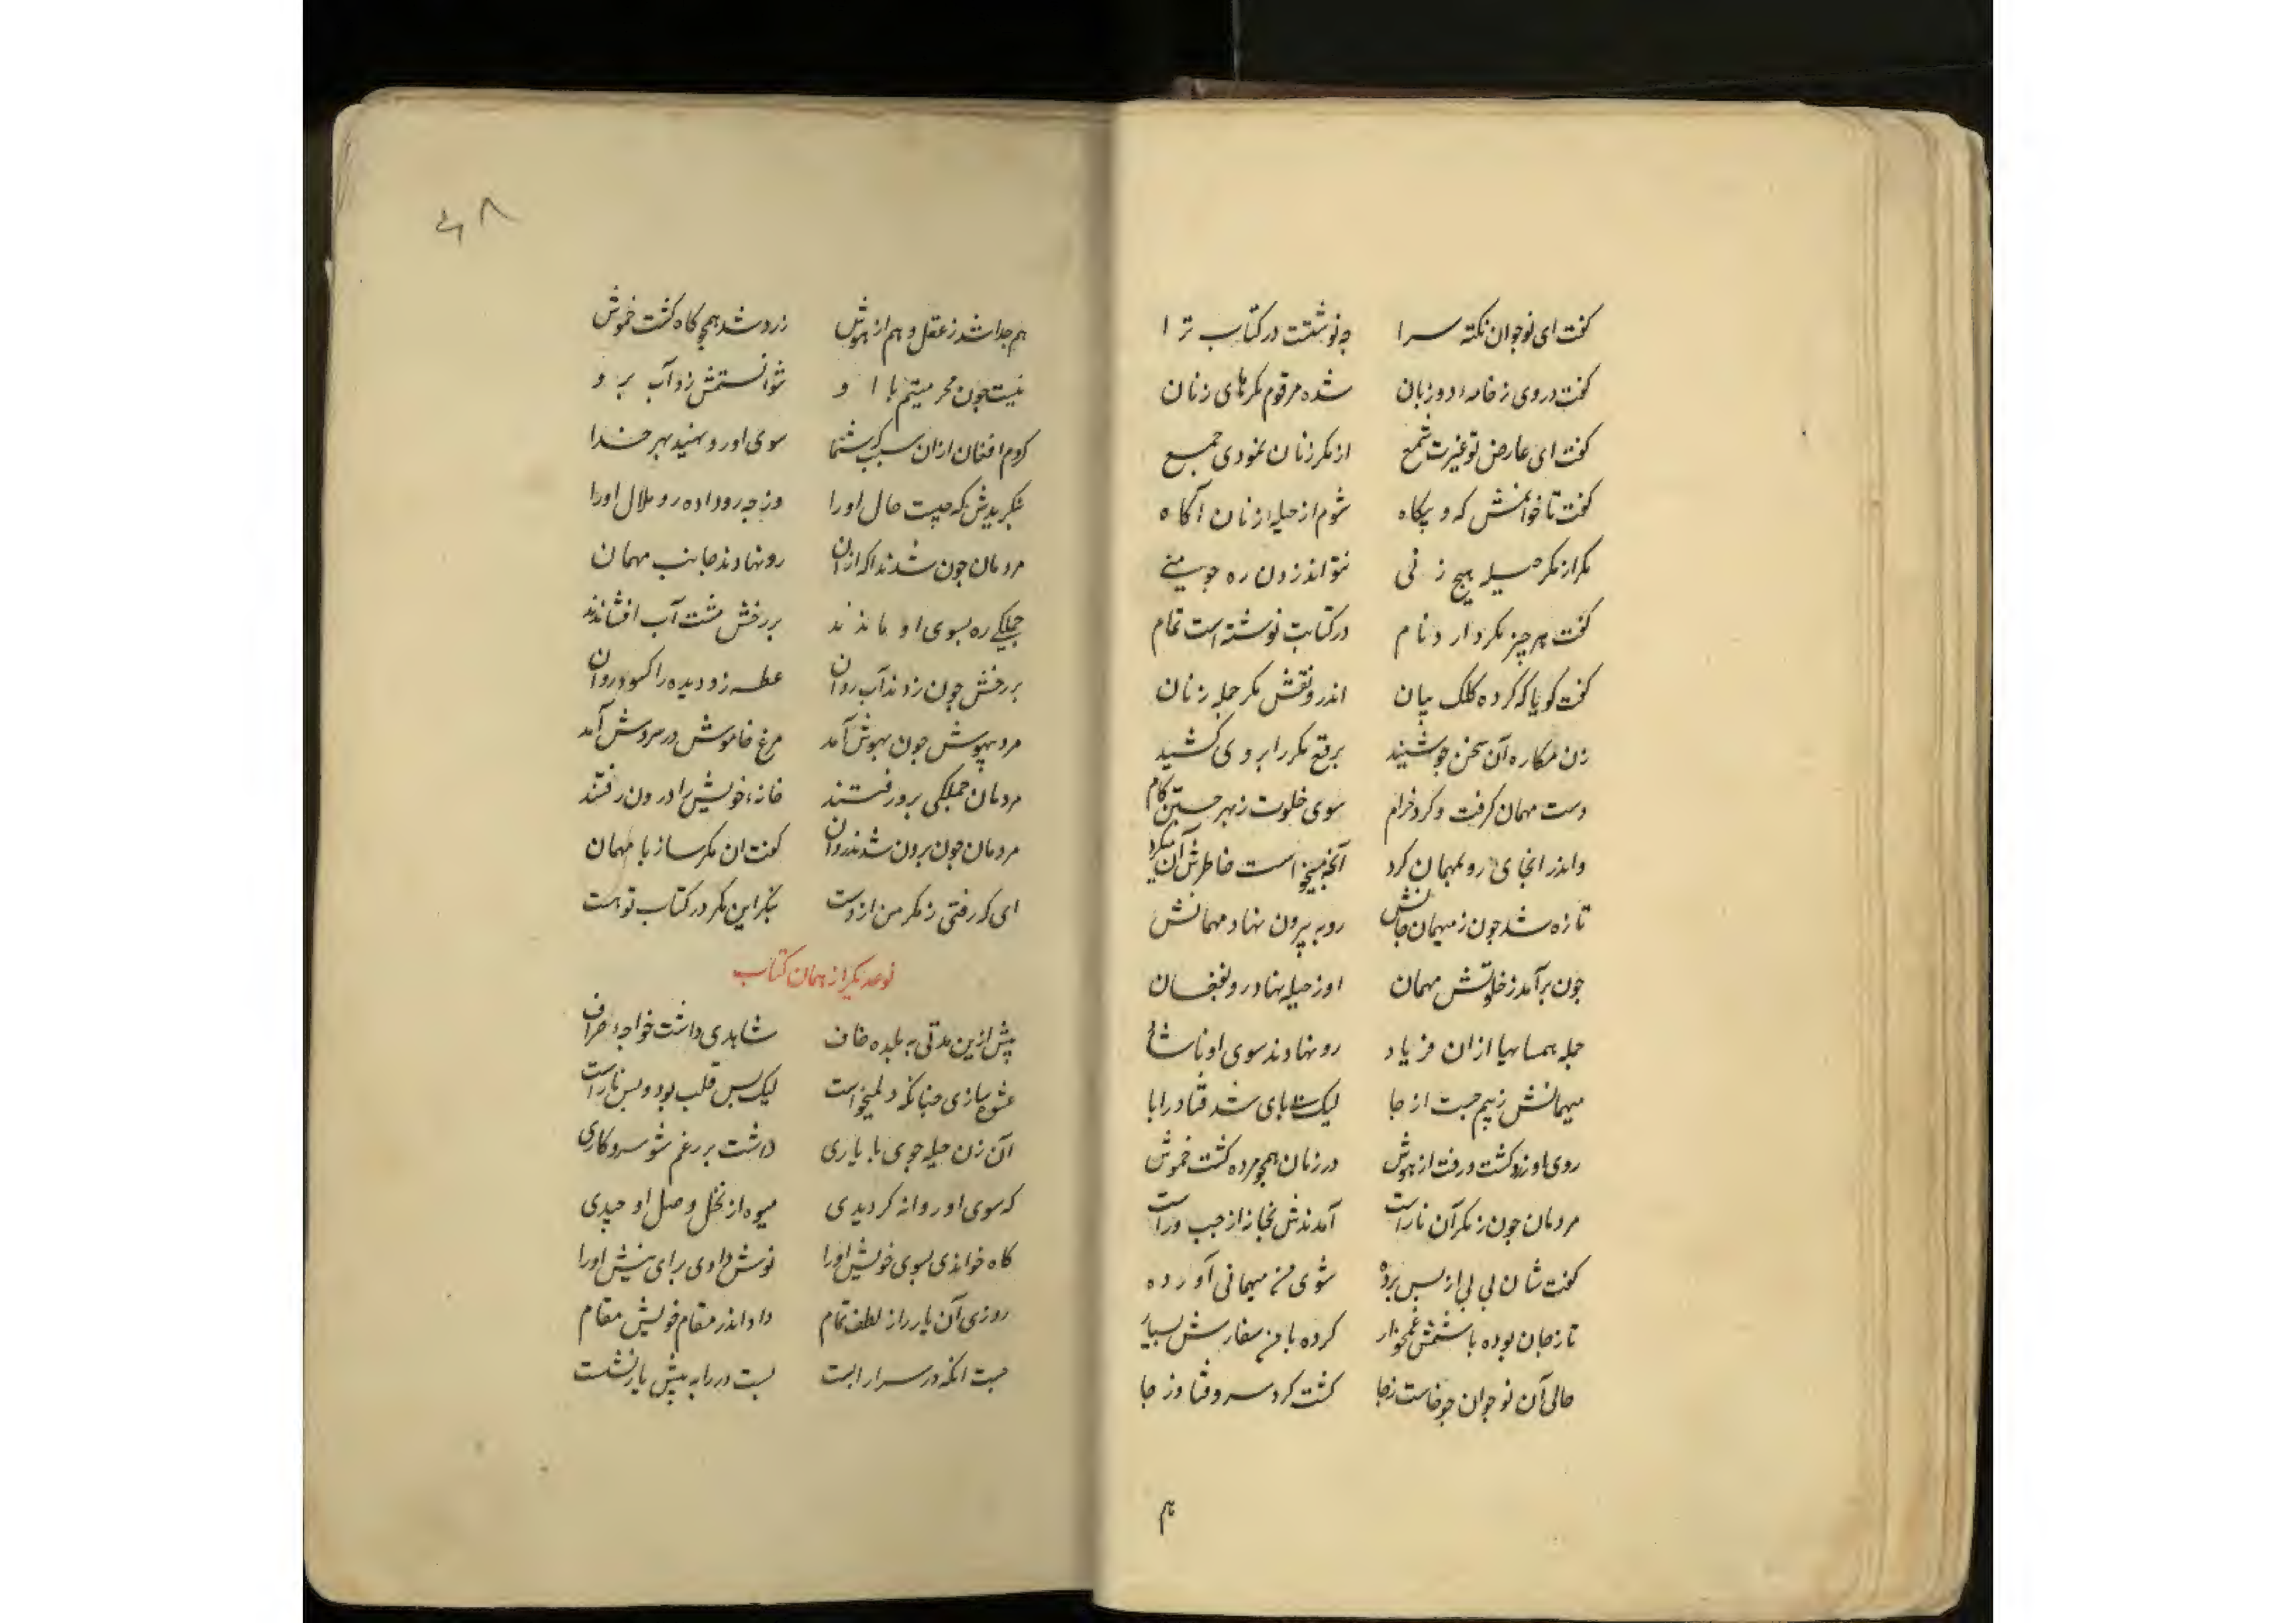 گفت ای نوجوان نکته سرا چه نوشتت در کتاب ترا
گفت در وی ز خامهٔ دو زبان شده مرقوم مکرهای زنان
گفت ای عارض تو غیرت شمع از مکر زنان نمودی جمع
گفت تا خوانمش که و بیکاه شوم از حیلهٔ زنان آکاه
مکر از مکر حیله هیچ زنی نتواند زدن ره چو منی
گفت هر چیز مکر دارد نام در کتابت نوشته است تمام
گفت کویا که کرده کلک بیان اندرو نقش مکر جمله زنان
زن مکاره آن سخن چو شنید برقع مکر را بروی کشید
دست مهمان کرفت و کرد خرام سوی خلوت ز بهر جستن کام
واندر انجای رو بمهمان کرد آنچه میخواست خاطرش آن کرد
تازه شد چون ز میهمان جانش رو به بیرون نهاد مهمانش
چون برآمد ز خلوتش مهمان او ز حیله نهاد رو بفغان
جمله همسایها از ان فریاد رو نهادند سوی او ناشاد
میهمانش ز بیم جست از جا لیک پای شد فتاد را با
روی او زرد کشت و رفت از هوش در زمان همچو مرده کشت خموش
مردمان چون ز مکر آن ناراست آمدندش بخانه از چپ و راست
گفت شان بی بی از پس پرده شوی من میهمانی آورده
تا ز جان بوده باشمش غمخوار کرده با من سفارش بسیار
حالی آن نوجوان چو خاست ز جا کشت کرد سر و فتاد ز جا
هم
۴۸
هم جدا شد ز عقل و هم از هوش زرد شد همچو کاه کشت خموش
نیست چون محرمیتم با او نتوانستمش زد آب برو
کردم افغان از ان سبب که شما سوی او رو نهید بهر خدا
بنکریدش که چیست حال او را وز چه رو داده رو ملال او را
مردمان چون شدند اکه ازان رو نهادند جانب مهمان
جملکی ره بسوی او ماندند بر رخش مشت آب افشاندند
بر رخش چون زدند آب روان عطسه زد و دیده را کشود روان
مرد بیهوش چون بهوش آمد مرغ خاموش در سروش آمد
مردمان جملکی برو رفتند خانهٔ خویش را درون رفتند
مردمان چون برون شدند روان گفت ان مکر ساز با مهمان
ای که رفتی ز مکر من از دست بنکر این مکر در کتاب تو هست
نوعدیکر از همان کتاب
پیش ازین مدتی به بلده خاف شاهدی داشت خواجهٔ صراف
عشوه سازی چنانکه دل میخواست لیک بس قلب بود و بس ناراست
آن زن حیله جوی با یاری داشت بر رغم شو سر و کاری
که سوی او روانه کردیدی میوه از نخل وصل او چیدی
کاه خواندی بسوی خویش او را نوش دادی برای نیش او را
روزی آن یار را ز لطف تمام داد اندر مقام خویش مقام
جست انکه در سرا را بست بست در را به پیش یار نشست